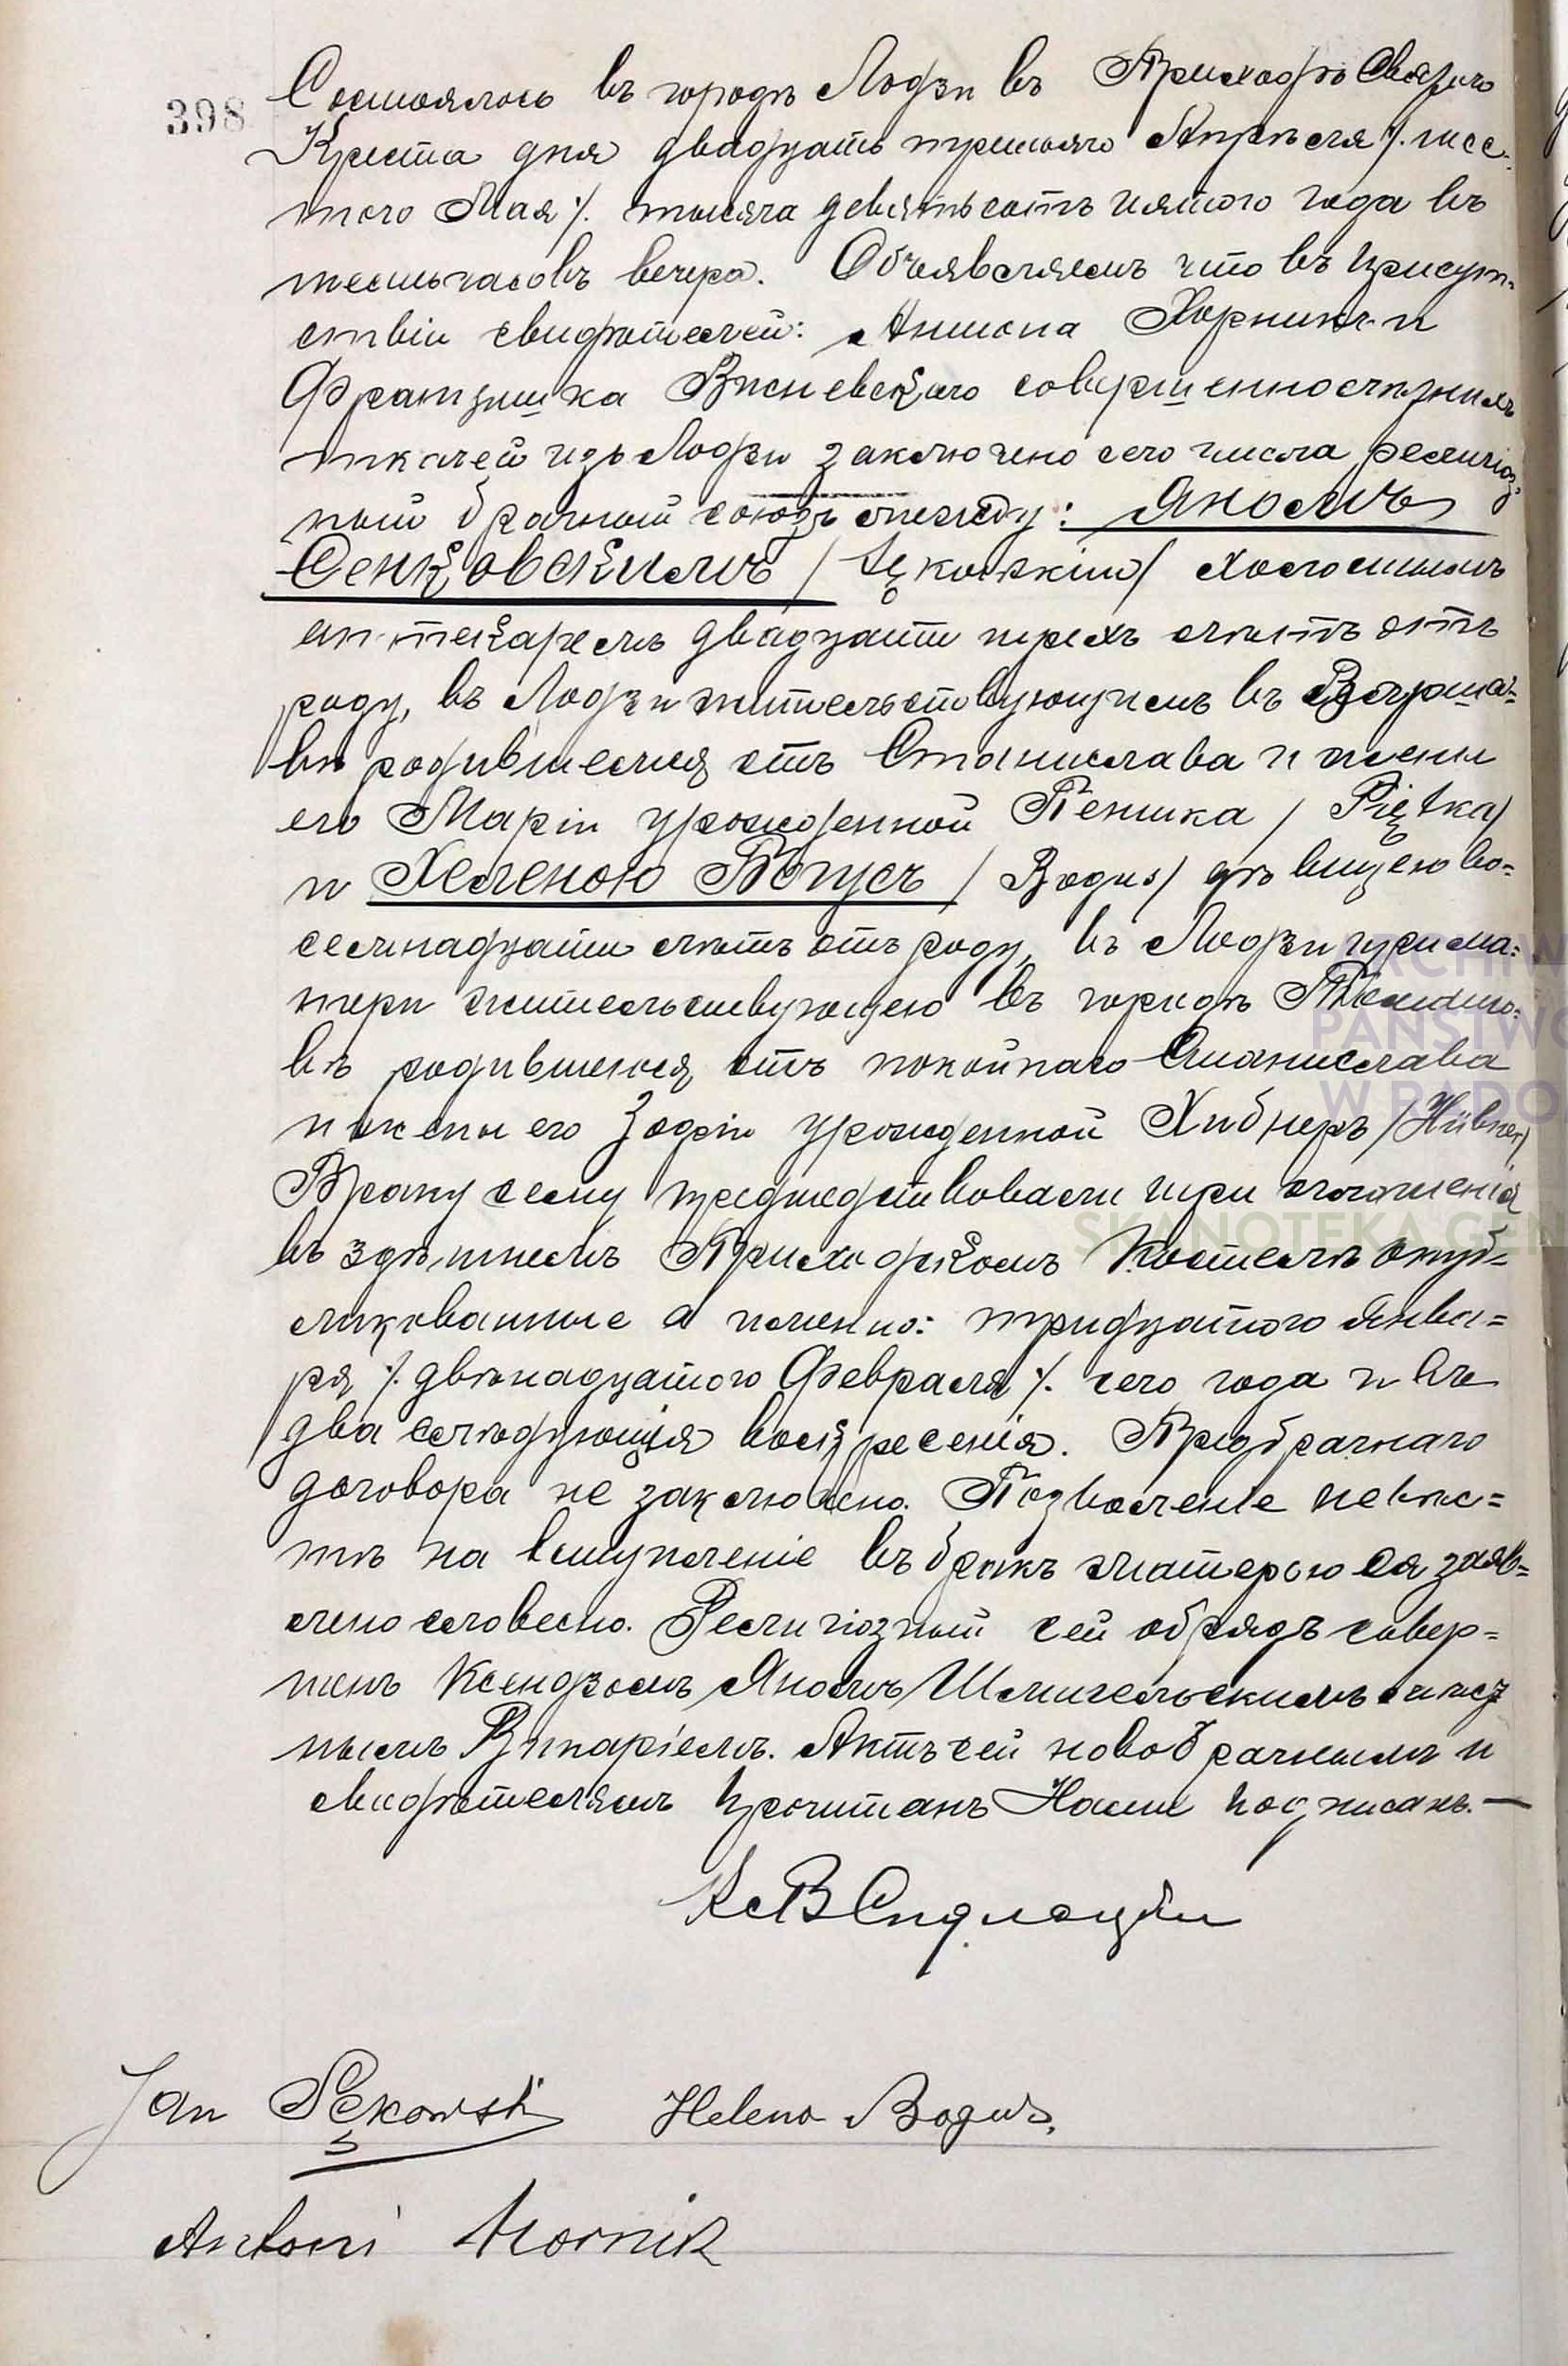 398
Состоялось въ городѣ Лодзи въ Приходѣ Святого
Креста дня двадцать третьяго Апрѣля /. шес-
того Мая /. тысяча девятьсотъ пятого года въ
шесть часовъ вечера. Объявляемъ что въ присут-
ствіи свидѣтелей: Антона Хорникъ и
Францишка Висневскаго совершеннолѣтнихъ
ткачей изъ Лодзи заключено сего числа религіоз-
ный брачный союзъ между: Яномъ
Сенковскимъ / Sękowskim / холостымъ
аптекаремъ двадцати трехъ лѣтъ отъ
роду, въ Лодзи жительствующимъ въ Варша-
вѣ родившемся отъ Станислава и жены
его Маріи урожденной Пентка / Piętka /
и Хеленою Богусъ / Bogus / дѣвицею во-
семнадцати лѣтъ отъ роду, въ Лодзи при ма-
тери жительствующею въ городѣ
вѣ родившеюся отъ покойнаго Станислава
и жены его Зофіи урожденной Хибнеръ / Hübner /
Браку сему предшедствовали три оглашенія
въ здѣшнемъ Приходскомъ Костелѣ опуб-
ликованные а именно: тридцатого Янва-
ря /. двѣнадцатого Февраля /. сего года и въ
два слѣдующія воскресенія. Предбрачнаго
договора не заключено. Позволеніе невѣс-
тѣ на вступленіе въ бракъ матерью ея заяв-
лено словесно. Религіозный сей обрядъ совер-
шенъ Ксендзомъ Яномъ Шмигельскимъ мѣст
нымъ Викаріемъ. Актъ сей новобрачнымъ и
свидѣтелямъ прочитанъ Нами подписанъ. —
Кс В
Jan Sękowski Helena Bogus.
Antoni Hornik
ARCHIW
PAŃSTWO
W RADO
SKANOTEKA GEN